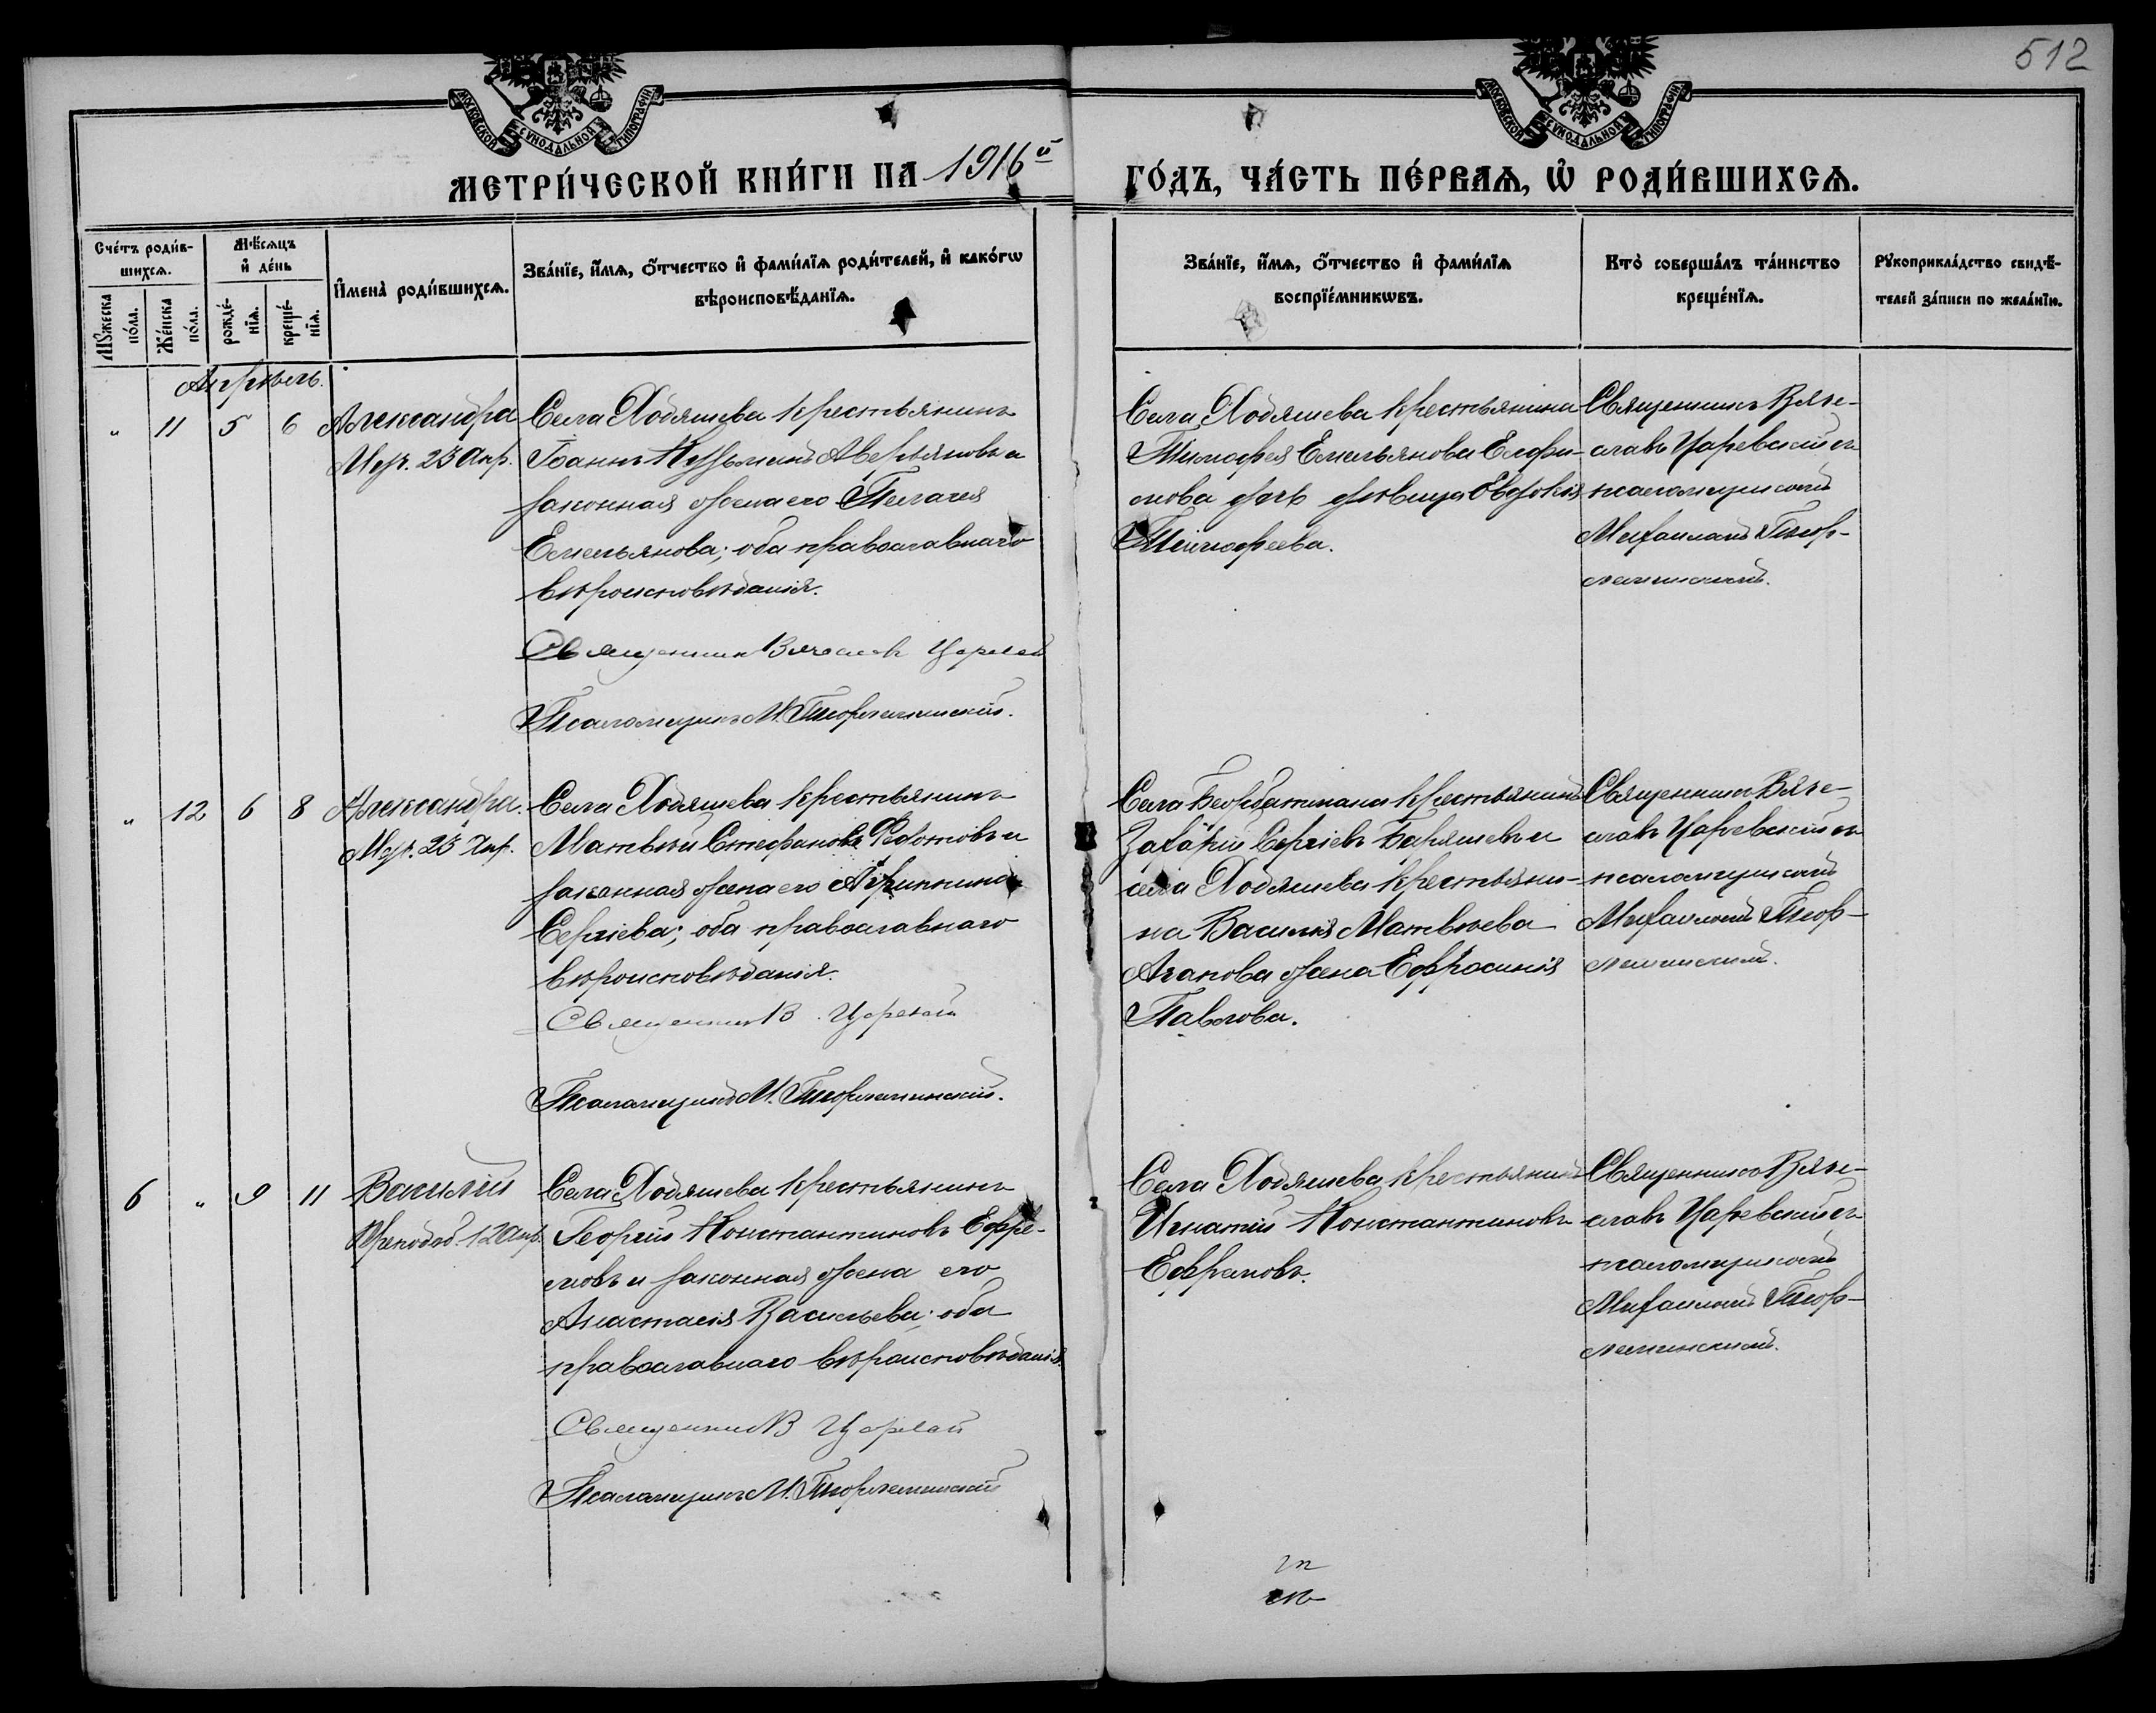 512
МОСКОВСКОЙ СѴНОДАЛЬНОЙ ТИПОГРАФІИ
МОСКОВСКОЙ СѴНОДАЛЬНОЙ ТИПОГРАФІИ
МЕТРИ́ЧЕСКОЙ КНИ́ГИ НА 1916й ГО́ДЪ, ЧА́СТЬ ПЕ́РВАѦ, Ѡ҆ РОДИ́ВШИХСѦ.
Сче́тъ роди́в-
шихсѧ.
Мꙋ́жеска по́ла.
Же́нска по́ла.
Мѣ́сѧцъ
и҆ де́нь
рожде́-
нїѧ.
креще́-
нїѧ.
И҆мена̀ роди́вшихсѧ.
Зва́нїе, и҆́мѧ, ѻ҆́тчество и҆ фами́лїѧ роди́телей, и҆ како́гѡ
вѣроисповѣ́данїѧ.
Зва́нїе, и҆́мѧ, ѻ҆́тчество и҆ фами́лїѧ
воспрїе́мникѡвъ.
Кто̀ соверша́лъ та́инство
креще́нїѧ.
Рꙋкоприкла́дство свидѣ́-
телей за́писи по жела́нїю.
Апрѣль.
" 11 5 6
Александра
Муч. 23 Апр.
Села Ходяшева крестьянинъ
Іоаннъ Кузьминъ Аверьяновъ и
законная жена его Пелагея
Емельянова; оба православнаго
вѣроисповѣданія.
Священник Вячеслав Царевский
Псаломщикъ М.
Села Ходяшева крестьянина
Тимофея Емельянова Ефи-
мова дочь дѣвица Евдокія
Тимофеева.
Священникъ Вяче-
славъ Царевскій съ
псаломщикомъ
Михаиломъ
" 12 6 8
Александра.
Муч. 23 Апр.
Села Ходяшева крестьянинъ
Матвѣй Стефановъ Федотовъ и
законная жена его Агриппина
Сергіева; оба православнаго
вѣроисповѣданія.
Священник В. Царевский
Псаломщикъ М.
Села крестьянинъ
Захарій Сергіевъ и
села Ходяшева крестьяни-
на Василія Матвѣева
Агапова жена Ефросинія
Павлова.
Священникъ Вяче-
славъ Царевскій съ
псаломщикомъ
Михаиломъ
6 " 9 11
Василій
Преподоб. 12 Апр.
Села Ходяшева крестьянинъ
Георгій Константиновъ Ефре-
мовъ и законная жена его
Анастасія Васильева; оба
православнаго вѣроисповѣданія.
Священник В Царевский
Псаломщикъ М.
Села Ходяшева крестьянинъ
Игнатій Константиновъ
Ефремовъ.
Священникъ Вяче-
славъ Царевскій съ
псаломщикомъ
Михаиломъ